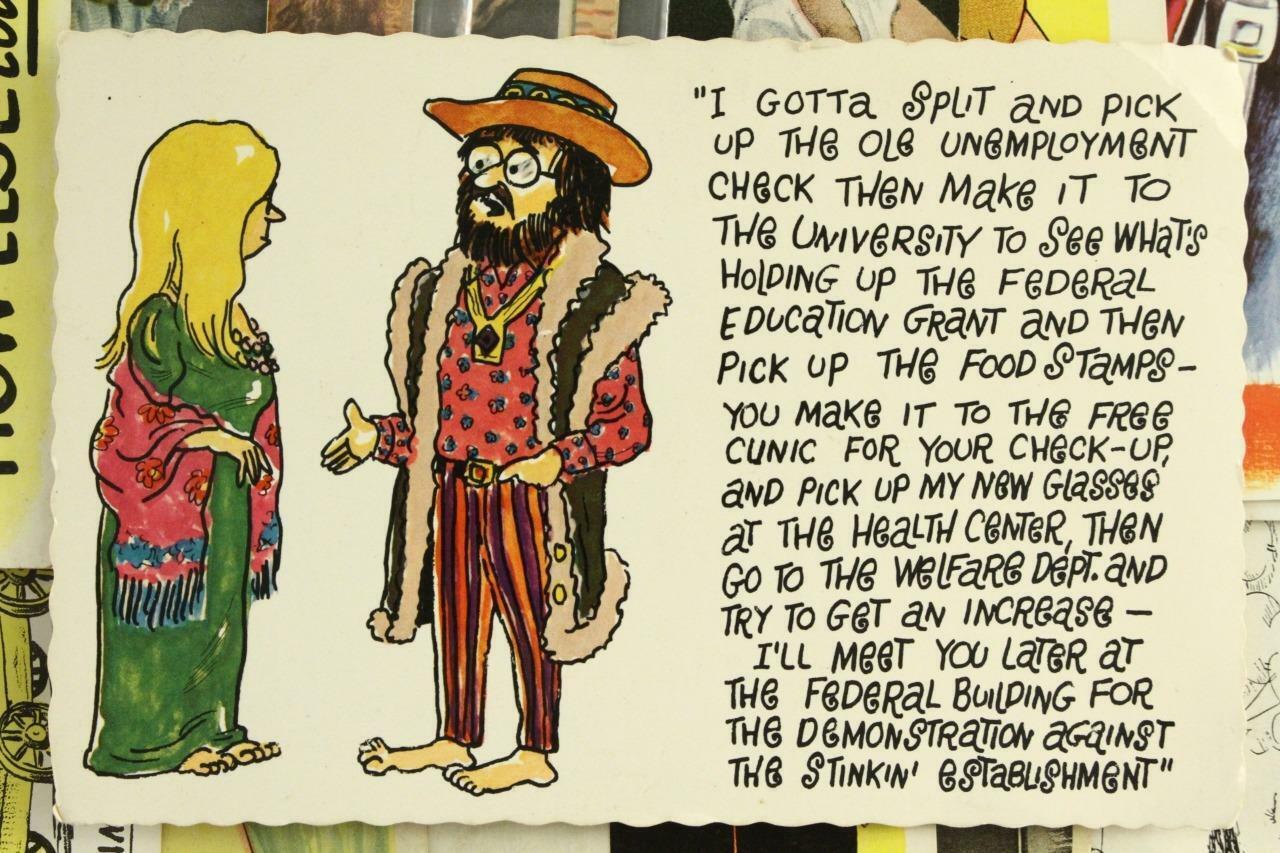 "I GOTTA SPLIT AND PICK
UP THE OLE UNEMPLOYMENT
CHECK THEN MAKE IT TO
THE UNIVERSITY TO SEE WHAT'S
HOLDING UP THE FEDERAL
EDUCATION GRANT AND THEN
PICK UP THE FOOD STAMPS-
YOU MAKE IT TO THE FREE
CLINIC FOR YOUR CHECK-UP,
AND PICK UP MY NEW GLASSES
AT THE HEALTH CENTER, THEN
GO TO THE WELFARE DEPT. AND
TRY TO GET AN INCREASE —
I'LL MEET YOU LATER AT
THE FEDERAL BUILDING FOR
THE DEMONSTRATION AGAINST
THE STINKIN' ESTABLISHMENT"